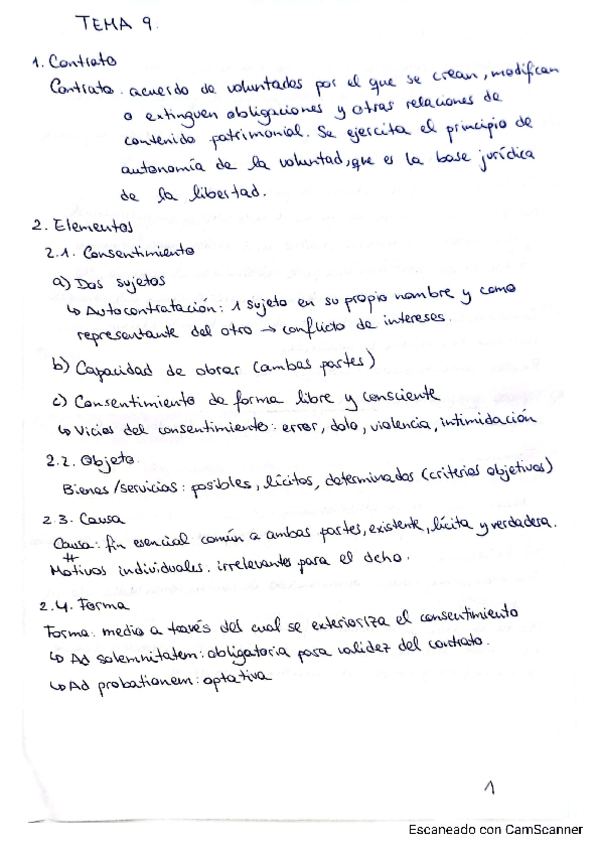 TEMA 9.
1. Contrato
Contrato: acuerdo de voluntades por el que se crean, modifican
o extinguen obligaciones y otras relaciones de
contenido patrimonial. Se ejercita el principio de
autonomía de la voluntad, que es la base jurídica
de la libertad.
2. Elementos
2.1. Consentimiento
a) Dos sujetos
↳ Autocontratación: 1 sujeto en su propio nombre y como
representante del otro → conflicto de intereses.
b) Capacidad de obrar (ambas partes)
c) Consentimiento de forma libre y consciente
↳ Vicios del consentimiento: error, dolo, violencia, intimidación
2.2. Objeto
Bienes/servicios: posibles, lícitos, determinados (criterios objetivos)
2.3. Causa
Causa: fin esencial común a ambas partes, existente, lícita y verdadera.
#
Motivos individuales: irrelevantes para el dcho.
2.4. Forma
Forma: medio a través del cual se exterioriza el consentimiento
↳ Ad solemnitatem: obligatoria para validez del contrato.
↳ Ad probationem: optativa
1
Escaneado con CamScanner